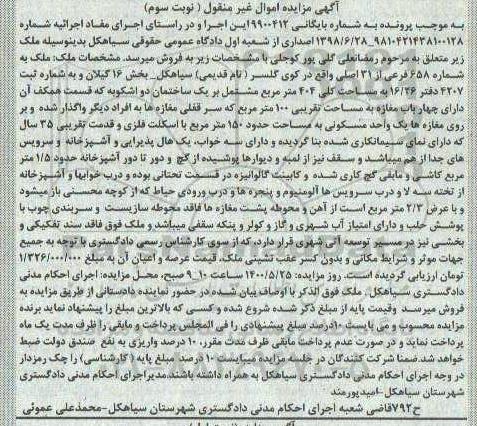 آگهی مزایده اموال غیر منقول ( نوبت سوم)
به موجب پرونده به شماره بایگانی ۹۹۰۰۴۱۲ این اجرا و در راستای اجرای مفاد اجرائیه شماره
۹۸۱۰۴۲۱۴۳۸۱۰۰۱۲۸_۱۳۹۸/۶/۲۸ اصداری از شعبه اول دادگاه عمومی حقوقی سیاهکل بدینوسیله ملک
زیر متعلق به مرحوم رمضانعلی گلی پور کوجلی با مشخصات زیر به فروش میرسد. مشخصات ملک: ملک به
شماره ۶۵۸ فرعی از ۳۱ اصلی واقع در کوی گلسر ( نام قدیمی) سیاهکل_ بخش ۱۶ گیلان و به شماره ثبت
۴۲۰۷ دفتر ۱۶/۴۶ به مساحت کلی ۴۰۴ متر مربع مشتمل بر یک ساختمان دو اشکوبه که قسمت همکف آن
دارای چهار باب مغازه به مساحت تقریبی ۱۰۰ متر مربع که سر قفلی مغازه ها به افراد دیگر واگذار شده و بر
روی مغازه ها یک واحد مسکونی به مساحت حدود ۱۵۰ متر مربع با اسکلت فلزی و قدمت تقریبی ۳۵ سال
که دارای نمای سیمانکاری شده بنا گردیده و دارای سه خواب، یک هال پذیرایی و آشپزخانه و سرویس
های جدا از هم میباشد و سقف نیز از لمبه و دیوارها پوشیده از گچ و دور تا دور آشپزخانه حدود ۱/۵ متر
مربع کاشی و مابقی گچ کاری شده و کابینت گالوانیزه در قسمت تحتانی بوده و درب خوابها و آشپزخانه
از تخته سه لا و درب سرویس ها آلومنیوم و پنجره ها و درب ورودی حیاط که از کوچه محسنی باز میشود
و با عرض ۲/۳ متر مربع است از آهن و محوطه پشت مغازه ها فاقد محوطه سازیست و سربندی چوب با
پوشش حلب و دارای امتیاز آب شهری و گاز و کولر و پنکه سقفی میباشد و ملک فوق فاقد سند تفکیکی و
بخشی نیز در مسیر توسعه آتی شهری قرار دارد، که از سوی کارشناس رسمی دادگستری با توجه به جمیع
جهات موثر و شرایط مکانی و بدون کسر عقب نشینی ملک، قیمت عرصه و اعیان آن به مبلغ ۱/۳۲۶/۰۰۰/۰۰۰
تومان ارزیابی گردیده است. روز مزایده: ۱۴۰۰/۵/۲۵ ساعت ۱۰_۹ صبح، محل مزایده: اجرای احکام مدنی
دادگستری سیاهکل. ملک فوق الذکر با اوصاف بیان شده در حضور نماینده دادستانی از طریق مزایده به
فروش میرسد وقیمت پایه از مبلغ ذکر شده شروع شده و کسی که بالاترین مبلغ را پیشنهاد نماید برنده
مزایده محسوب و می بایست ۱۰درصد مبلغ پیشنهادی را فی المجلس پرداخت و مابقی را ظرف مدت یک ماه
پرداخت نماید و در صورت عدم پرداخت مابقی ظرف مدت مقرر، ۱۰ درصد واریزی به نفع صندق دولت ضبط
خواهد شد.ضمنا شرکت کنندگان در جلسه مزایده میبایست ۱۰ درصد مبلغ پایه ( کارشناسی) را چک رمزدار
در وجه اجرای احکام مدنی دادگستری سیاهکل به همراه داشته باشند.مدیراجرای احکام مدنی دادگستری
شهرستان سیاهکل-امیدپورمند
ح۷۹۲قاضی شعبه اجرای احکام مدنی دادگستری شهرستان سیاهکل-محمدعلی عموئی